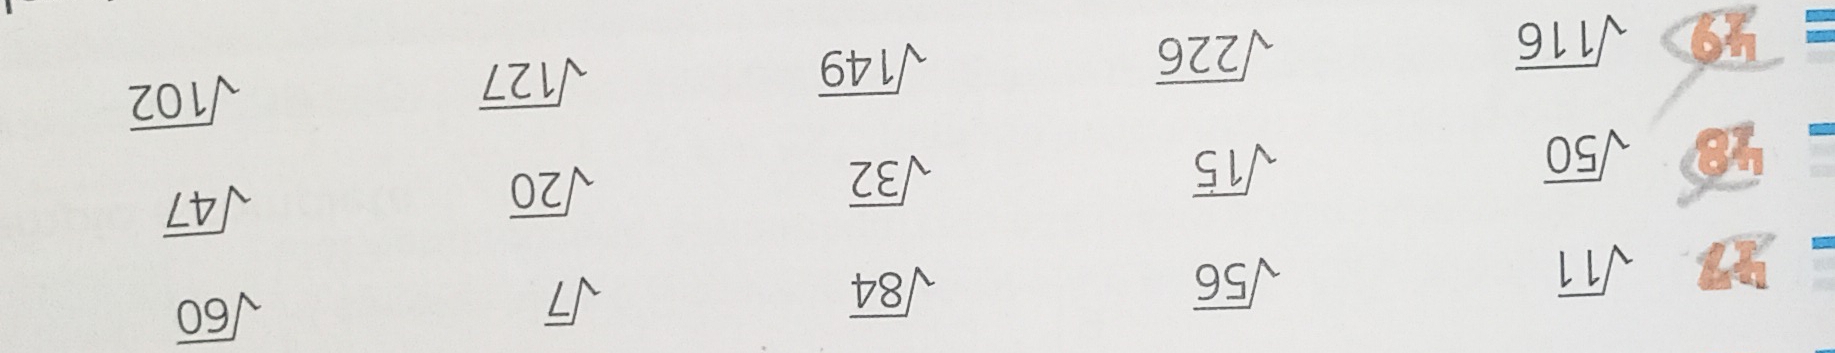 47 √11 √56 √84 √7 √60
48 √50 √15 √32 √20 √47
49 √116 √226 √149 √127 √102